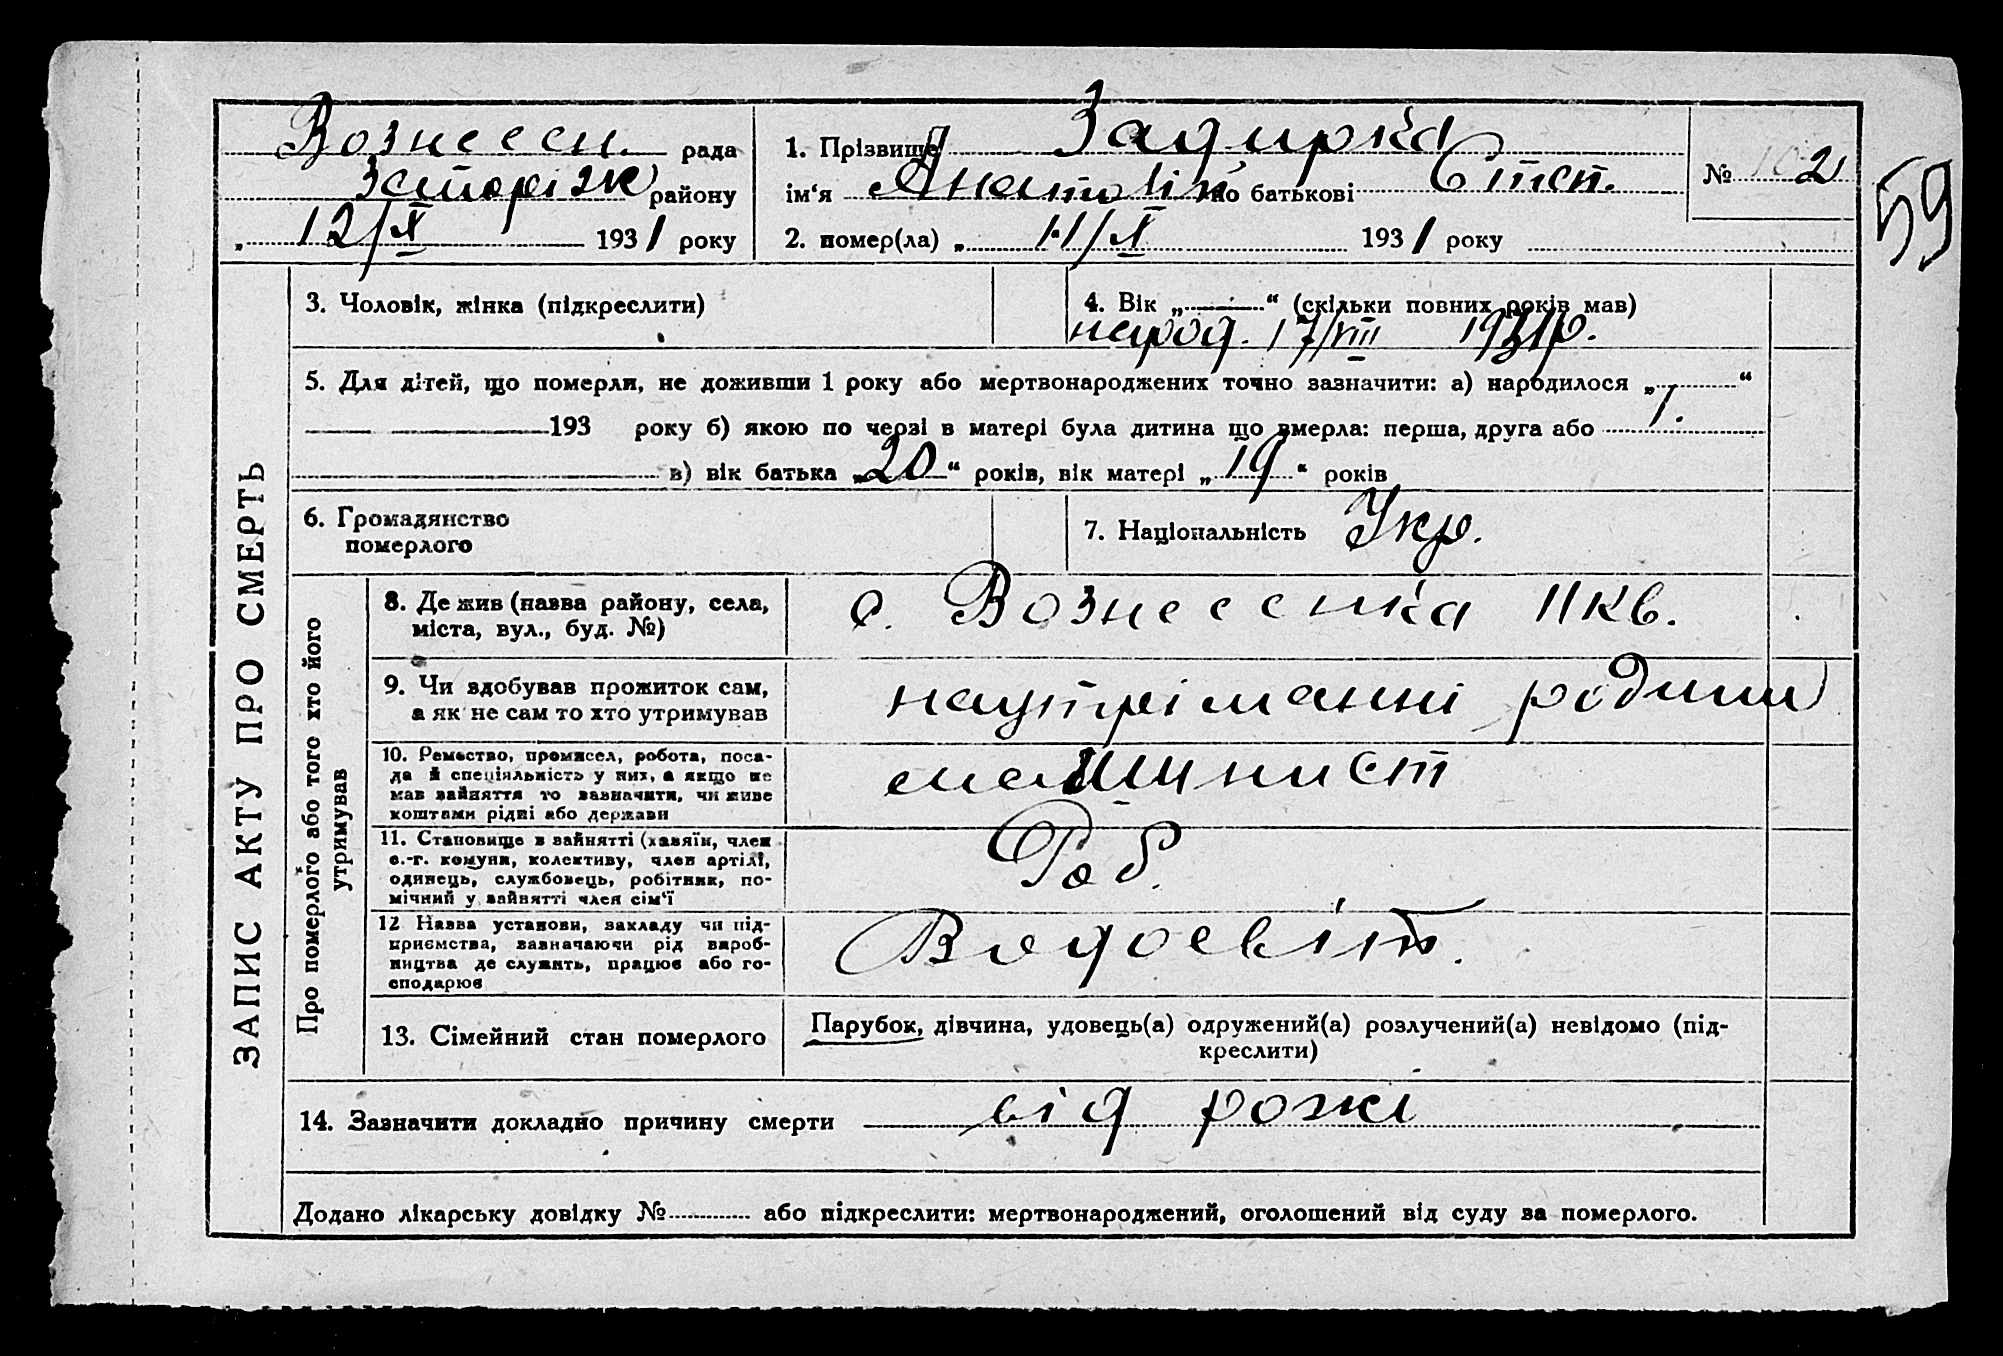 Вознесен. рада
Запоріж району
12/X 1931 року
1. Прізвище Задирка
ім‘я Анатолій по батькові Степ.
2. помер(ла) „ 11/X 1931 року
№ 102
59
ЗАПИС АКТУ ПРО СМЕРТЬ
3. Чоловік, жінка (підкреслити)
4. Вік „ “ (скільки повних років мав)
народ. 17/VIII 1931р.
5. Для дітей, що померли, не доживши 1 року або мертвонароджених точно зазначити: а) народилося „ “
193 року б) якою по черзі в матері була дитина що вмерла: перша, друга або 1.
в) вік батька „20“ років, вік матері „19“ років
6. Громадянство
померлого
7. Національність Укр.
Про померлого або того хто його
утримував
8. Де жив (назва району, села,
міста, вул., буд. №)
с. Вознесенка 11 кв.
9. Чи здобував прожиток сам,
а як не сам то хто утримував
на утріманні родини
10. Ремество, промисел, робота, поса-
да й спеціяльність у них, а якщо не
мав зайняття то зазначити, чи живе
коштами рідні або держави
машинист
11. Становище в зайнятті (хазяїн, член
с.-г. комуни, колективу, член артілі,
одинець, службовець, робітник, по-
мічний у зайнятті член сім‘ї
Роб.
12 Назва установи, закладу чи під-
приємства, зазначаючи рід вироб-
ництва де служить, працює або го-
сподарює
Водосвіт.
13. Сімейний стан померлого
Парубок, дівчина, удовець(а) одружений(а) розлучений(а) невідомо (під-
креслити)
14. Зазначити докладно причину смерти від рожі
Додано лікарську довідку № або підкреслити: мертвонароджений, оголошений від суду за померлого.